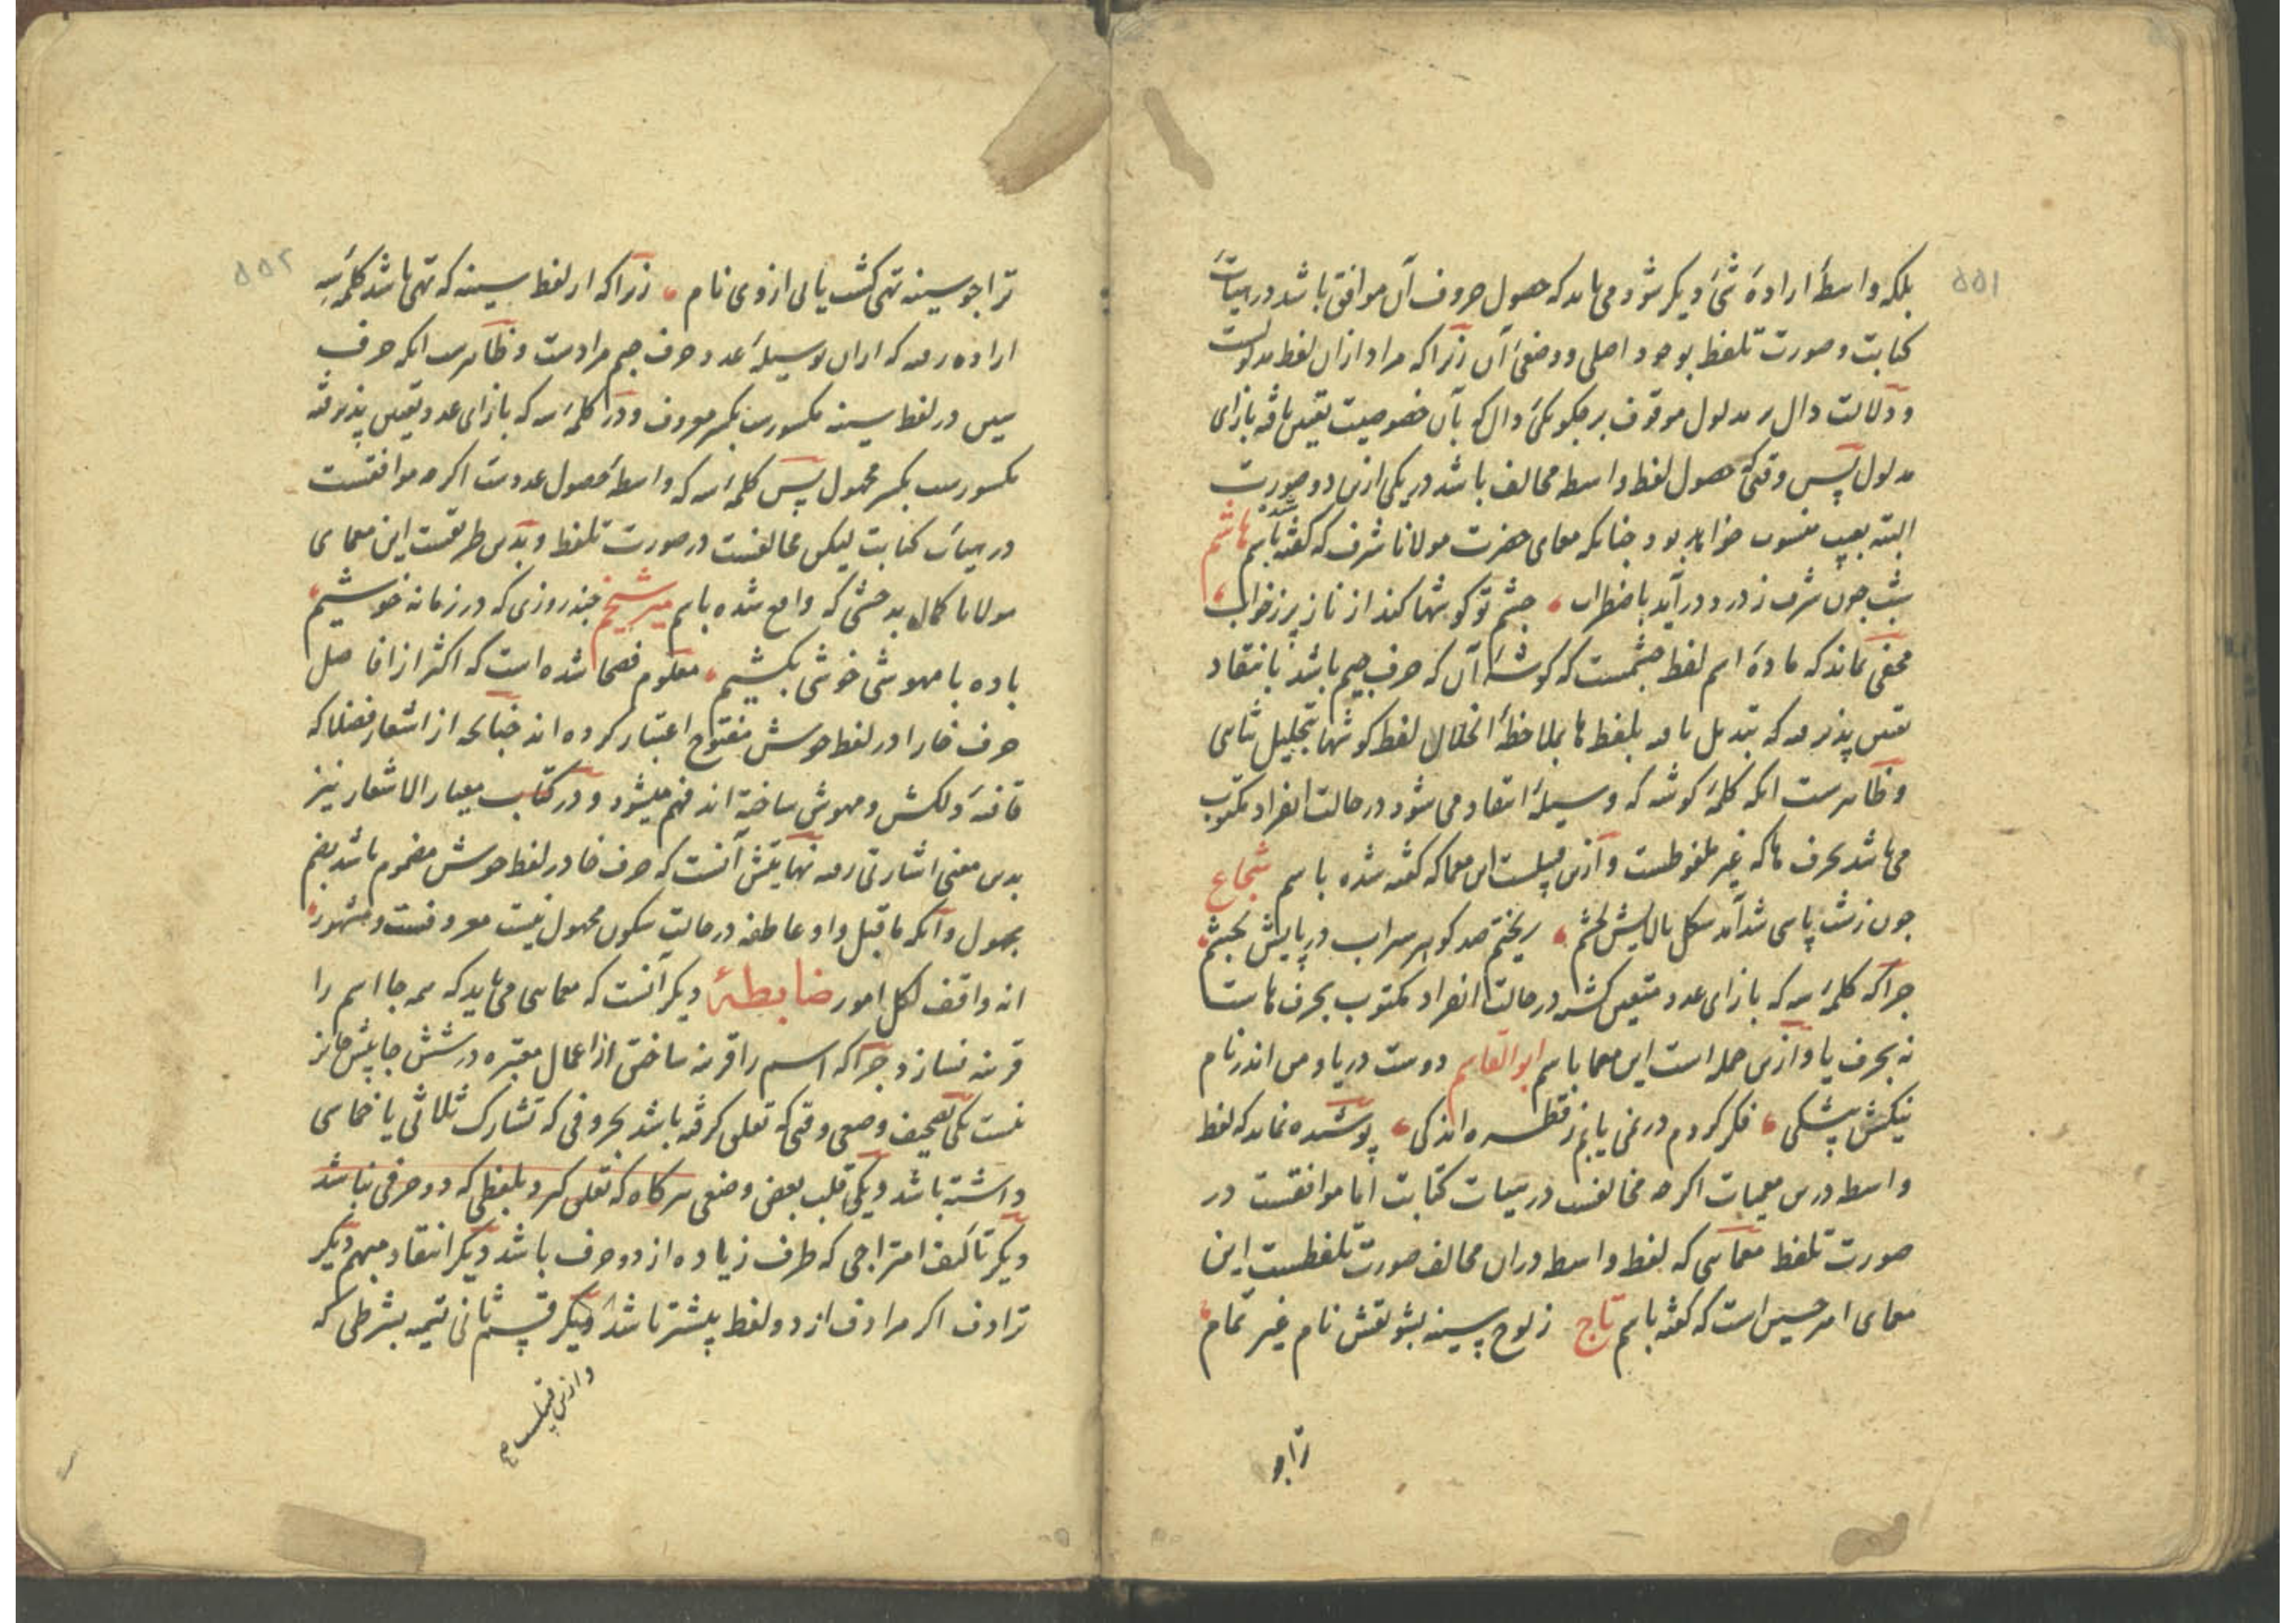 ۵۵۱
بلکه واسطهٔ ارادهٔ شیٔ دیکر شود می باید که حصول حروف آن موافق باشد در هیأت
کتابت و صورت تلفظ بوجود اصلی و وضعیٔ آن زیرا که مراد ازان لفظ مدلولست
و دلالت دال بر مدلول موقوف بر چکونکیٔ دال که بآن خصوصیت تعین یافته بازای
مدلول پس وقتی که حصول لفظ واسطه مخالف باشد در یکی ازین دو صورت
البته بعیب منسوب خواهد بود چنانکه معمای حضرت مولانا شرف که کفته شده باسم هاشم
شب چون شرف ز در و درآید باضطراب چشم تو کوشها کند از ناز پر ز خواب
مخفی نماند که مادهٔ اسم لفظ چشمست که کوشهٔ آن که حرف جیم باشد بانتقاد
تعین پذیرفته که تبدیل یافته بلفظ ها بملاحظهٔ انحلال لفظ کوشها بتحلیل ثنایی
و ظاهرست انکه کلمهٔ کوشه که وسیلهٔ انتقاد می شود در حالت انفراد مکتوب
می باشد بحرف ها که غیر ملفوظست و ازین قبیلست این معما که کفته شده باسم شجاع
چون ز شب پاسی شد آمد شکل بالایش بچشم ریختم صد کوهر سیراب در پایش بچشم
چرا که کلمهٔ سه که بازای عدد متعین کشته در حالت انفراد مکتوب بحرف هاست
نه بحرف یا و ازین جمله است این معما باسم ابوالقاسم دوست دریا و من اندر نام
نیکش پیشکی فکر کردم در نمی یابم ز قطره اندکی پوشیده نماند که لفظ
واسطه درین معمیات اکرچه مخالفست در هیات کتابت اما موافقست در
صورت تلفظ معمایی که لفظ واسطه دران مخالف صورت تلفظست این
معمای امیر حسین است که کفته باسم تاج ز لوح سینه بشو نقش نام غیر تمام
ترا چو
۵۵۲
ترا چو سینه تهی کشت یابی از وی نام زیرا که از لفظ سینه که تهی باشد کلمهٔ سه
اراده رفته که ازان بوسیلهٔ عدد حرف جیم مرادست و ظاهرست انکه حرف
سین در لفظ سینه مکسورست بکسر معروف و در کلمهٔ سه که بازای عدد تعین پذیرفته
مکسورست بکسر مجهول پس کلمهٔ سه که واسطهٔ حصول عددست اکرچه موافقست
در هیأت کتابت لیکن مخالفست در صورت تلفظ و بدین طریقست این معمای
مولانا کمال بدخشی که واقع شده باسم میر شیخم چند روزی که در زمانه خوشیم
باده با مهوشی خوشی بکشیم معلوم فصحا شده است که اکثر از افاضل
حرف خا را در لفظ خوش مفتوح اعتبار کرده اند چنانچه از اشعار فضلا که
قافیهٔ دلکش و مهوش ساخته اند فهم میشود و در کتاب معیار الاشعار نیز
بدین معنی اشارتی رفته نهایتش آنست که حرف خا در لفظ خوش مضموم باشد بضم
مجهول و آنکه ماقبل واو عاطفه در حالت سکون مجهول نیست معروفست و مشهور
انه واقف لکل امور ضابطهٔ دیکر آنست که معمایی می باید که همه جا اسم را
قرینه نسازد چرا که اسم را قرینه ساختن از اعمال معتبره در شش جا بیش جایز
نیست یکی تصحیف وضعی وقتی که تعلق کرفته باشد بحروفی که تشارک ثلاثی یا خماسی
داشته باشد و یکی قلب بعض وضعی هرکاه که تعلق کیرد بلفظی که دو حرفی نباشد
دیکر تألیف امتزاجی که ظرف زیاده از دو حرف باشد دیکر انتقاد مبهم دیکر
ترادف اکر مرادف از دو لفظ بیشتر باشد دیکر قسم ثانی تتمیه بشرطی که
وازین قبیلست